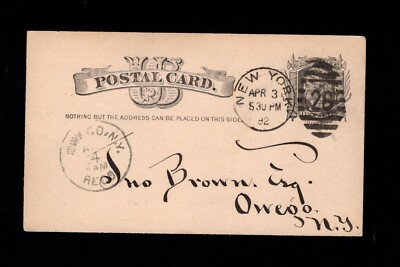 US
POSTAL CARD.
NOTHING BUT THE ADDRESS CAN BE PLACED ON THIS SIDE.
NEW YORK
APR 3
530 PM
82
CO. N.Y.
4
AM
REC'D
Jno Brown. Esq.
Owego.
N.Y.